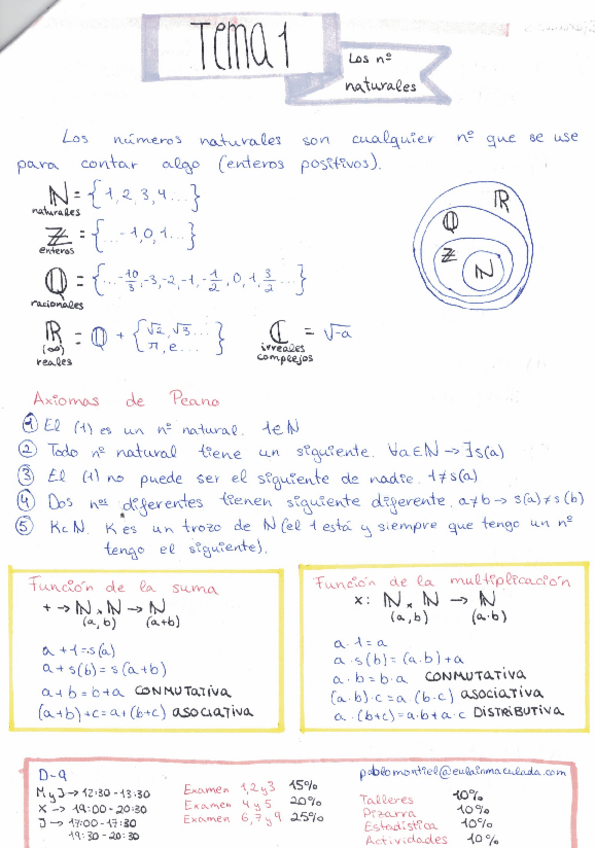 Tema 1
Los nº
naturales
Los números naturales son cualquier nº que se use
para contar algo (enteros positivos).
ℕ = {1, 2, 3, 4...}
naturales
ℤ = {... -1, 0, 1...}
enteros
ℚ = {... -10/3, -3, -2, -1, -1/2, 0, 1, 3/2 ...}
racionales
ℝ = ℚ + {√2, √3... π, e...}
(∞)
reales
ℂ = √-a
irreales
complejos
ℝ
ℚ
ℤ
ℕ
Axiomas de Peano
① El (1) es un nº natural. 1∈ℕ
② Todo nº natural tiene un siguiente. ∀a∈ℕ → ∃s(a)
③ El (1) no puede ser el siguiente de nadie. 1≠s(a)
④ Dos nos diferentes tienen siguiente diferente. a≠b → s(a)≠s(b)
⑤ K⊂N. K es un trozo de N (el 1 está y siempre que tengo un nº
tengo el siguiente).
Función de la suma
+ → ℕ x ℕ → ℕ
(a, b) (a+b)
a + 1 = s(a)
a + s(b) = s(a+b)
a + b = b + a CONMUTATIVA
(a+b)+c = a+(b+c) ASOCIATIVA
Función de la multiplicación
x: ℕ x ℕ → ℕ
(a, b) (a·b)
a · 1 = a
a · s(b) = (a·b)+a
a · b = b · a CONMUTATIVA
(a·b)·c = a (b·c) ASOCIATIVA
a · (b+c) = a·b + a·c DISTRIBUTIVA
D-9
M y J → 12:30-13:30
X → 19:00-20:30
J → 17:00-17:30
19:30-20:30
Examen 1, 2 y 3 15%
Examen 4 y 5 20%
Examen 6, 7 y 9 25%
pablomontiel@eulainmaculada.com
Talleres 10%
Pizarra 10%
Estadística 10%
Actividades 10%